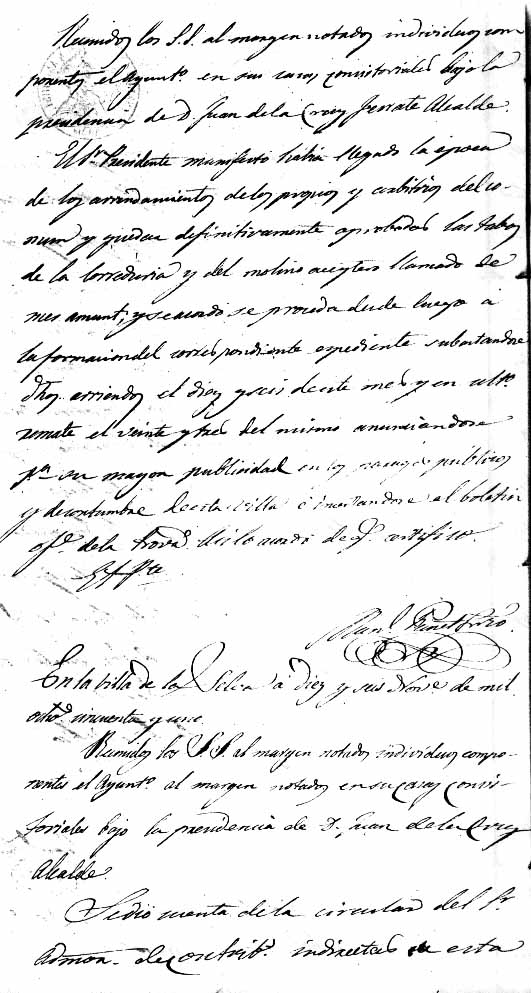 Reunidos los S.S. al margen notados individuos com-
ponentes el Ayuntº en sus casas consitoriales bajo la
presidencia de D. Juan de la Cruz Alcalde
El Sr Presidente manifesto habia llegado la epoca
de los arrendamientos de los propios y arbitrios del co-
mun y quedar definitivamente aprobadas las tabas
de la Correduria y del molino aceytero llamado de
mes amunt, y se acordó se proceda desde luego a
la formacion del correspondiente espediente subastandose
dhos arriendos el diez y seis de este mes y en ultº
remate el veinte y tres del mismo anunciandose
pª su mayor publicidad en los parages publicos
y de costumbre de esta villa é insertandose al boletin
ofl de la Provª Asi lo acordó de q. certifico.
El Pte
En la villa de la Selva á diez y seis Nove de mil
ochos cincuenta y uno.
Reunidos los S.S. al margen notados individuos compo-
nentes el Ayuntº al margen notados en su casas consis-
toriales bajo la presidencia de D. Juan de la Cruz
Alcalde.
Se dio cuenta de la circular del Sr
Admon. de contribs indirectas de esta